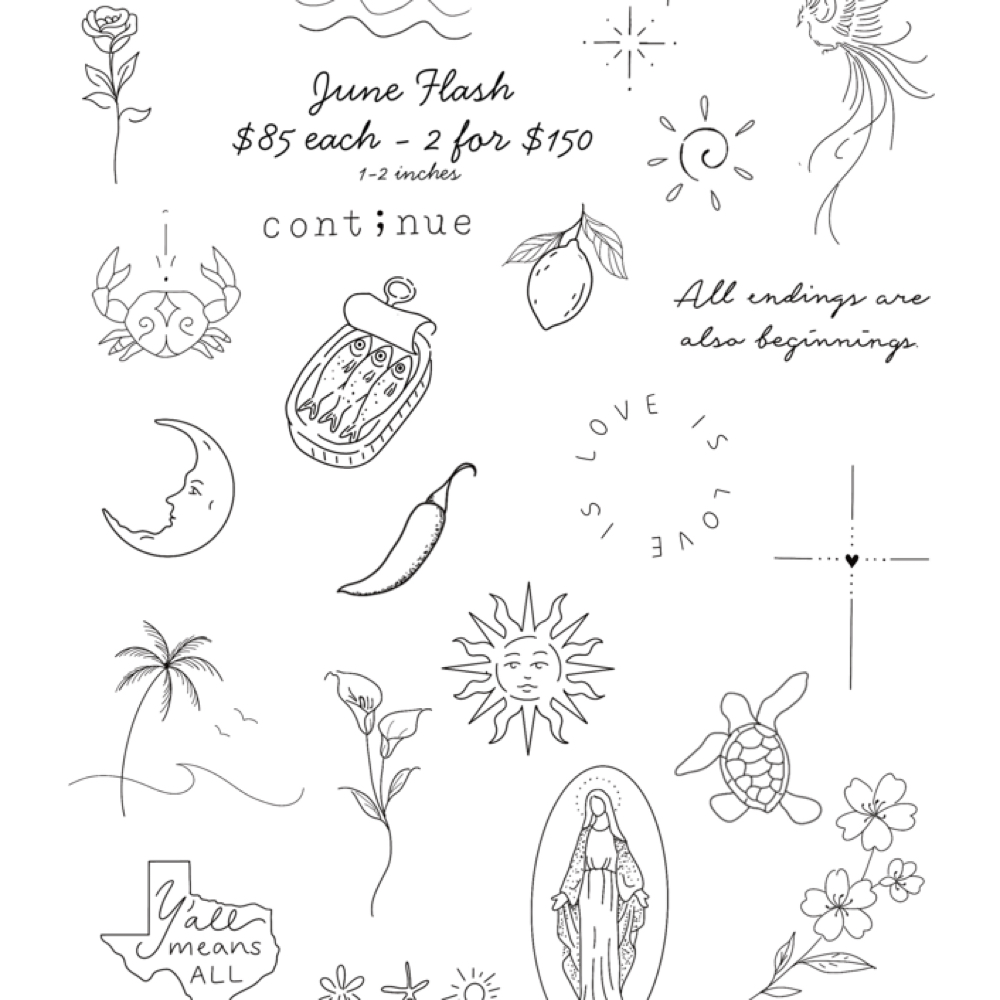 June Flash
$85 each - 2 for $150
1-2 inches
cont;nue
All endings are
also beginnings.
LOVE IS LOVE IS
Y'all
means
ALL